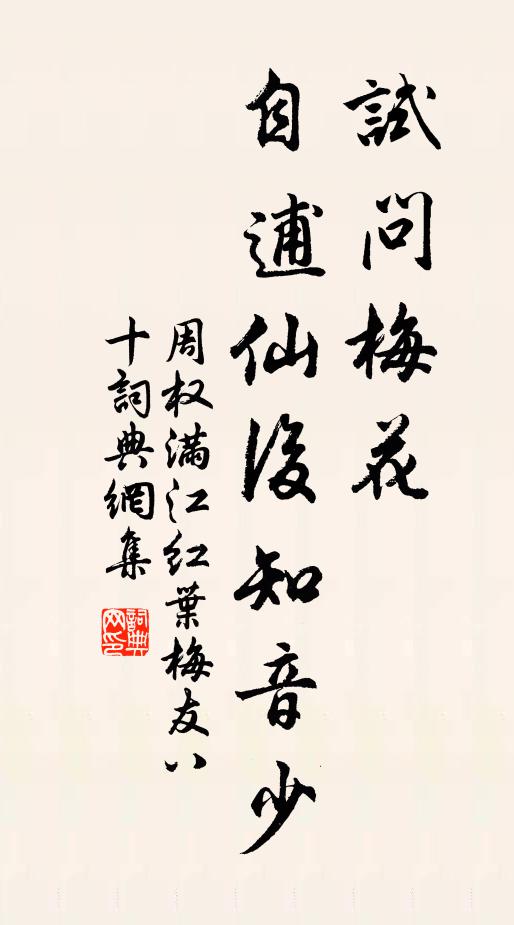 試問梅花
自逋仙後知音少
周权滿江红葉梅友八
十詞典網集
詞典
网印